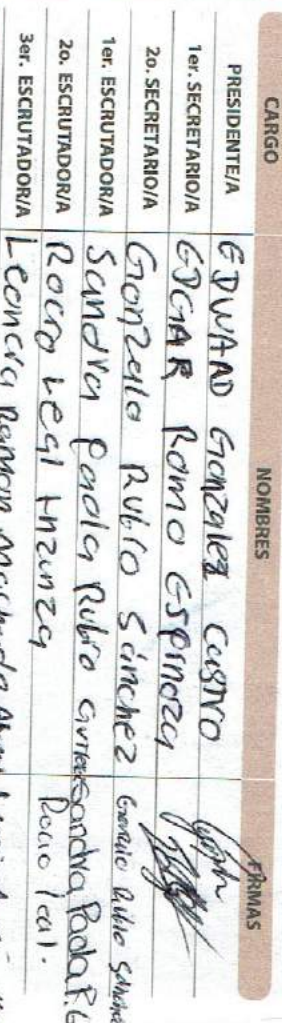 CARGO NOMBRES FIRMAS
PRESIDENTE/A EDWARD Gonzalez Castro
1er. SECRETARIO/A EDGAR Romo Espinoza
2o. SECRETARIO/A Gonzalo Rubio Sánchez Gonzalo Rubio Sánchez
1er. ESCRUTADOR/A Sandra Paola Rubio Sandra Paola R. G
2o. ESCRUTADOR/A Rocio Leal Rocio leal.
3er. ESCRUTADOR/A Ramon Machado